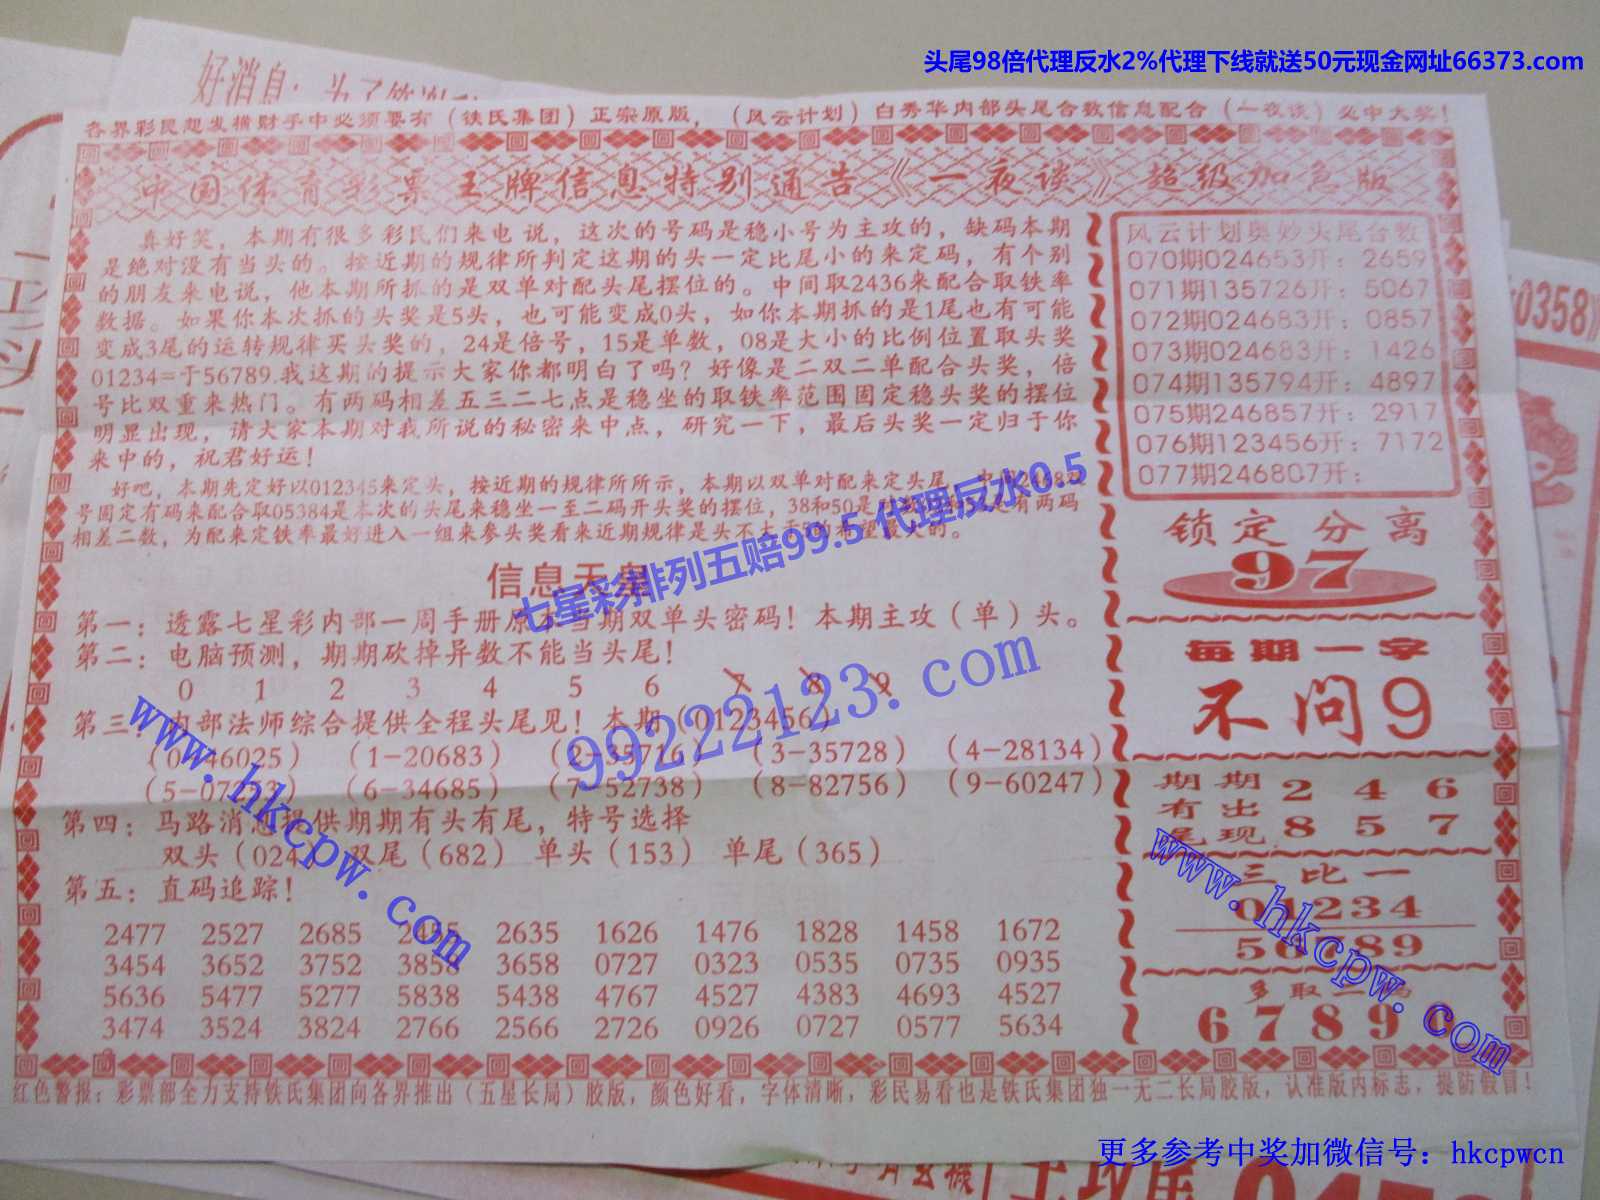 头尾98倍代理反水2%代理下线就送50元现金网址66373.com
好消息：为了
各界彩民想发横财手中必须要有（铁氏集团）正宗原版，（风云计划）白秀华内部头尾合数信息配合（一夜谈）必中大奖！
中国体育彩票王牌信息特别通告《一夜谈》超级加急版
真好笑，本期有很多彩民们来电说，这次的号码是稳小号为主攻的，缺码本期
是绝对没有当头的。按近期的规律所判定这期的头一定比尾小的来定码，有个别
的朋友来电说，他本期所抓的是双单对配头尾摆位的。中间取2436来配合取铁率
数据。如果你本次抓的头奖是5头，也可能变成0头，如你本期抓的是1尾也有可能
变成3尾的运转规律买头奖的，24是倍号，15是单数，08是大小的比例位置取头奖
01234=于56789.我这期的提示大家你都明白了吗？好像是二双二单配合头奖，倍
号比双重来热门。有两码相差五三二七点是稳坐的取铁率范围固定稳头奖的摆位
明显出现，请大家本期对我所说的秘密来中点，研究一下，最后头奖一定归于你
来中的，祝君好运！
好吧，本期先定好以012345来定头，按近期的规律所所示，本期以双单对配来定头尾，
号固定有码来配合取05384是本次的头尾来稳坐一至二码开头奖的摆位，38和50是 有两码
相差二数，为配来定铁率最好进入一组来参头奖看来近期规律是头不大于5的希望最大的。
信息天皇
第一：透露七星彩内部一周手册原本当期双单头密码！本期主攻（单）头。
第二：电脑预测，期期砍掉异数不能当头尾！
0 1 2 3 4 5 6 7 8 9
第三：内部法师综合提供全程头尾见！本期（0123456）
（0-46025） （1-20683） （2-35716） （3-35728） （4-28134）
（5-07 3） （6-34685） （7-52738） （8-82756） （9-60247）
第四：马路消息提供期期有头有尾，特号选择
双头（024） 双尾（682） 单头（153） 单尾（365）
第五：直码追踪！
2477 2527 2685 2455 2635 1626 1476 1828 1458 1672
3454 3652 3752 3858 3658 0727 0323 0535 0735 0935
5636 5477 5277 5838 5438 4767 4527 4383 4693 4527
3474 3524 3824 2766 2566 2726 0926 0727 0577 5634
风云计划奥妙头尾合数
070期024653开：2659
071期135726开：5067
072期024683开：0857
073期024683开：1426
074期135794开：4897
075期246857开：2917
076期123456开：7172
077期246807开：
锁定分离
97
每期一字
不问9
期期 2 4 6
有出
尾现 8 5 7
三比一
01234
56789
多取二码
6789
红色警报：彩票部全力支持铁氏集团向各界推出（五星长局）胶版，颜色好看，字体清晰，彩民易看也是铁氏集团独一无二长局胶版，认准版内标志，提防假冒！
0358》
七星彩排列五赔99.5 代理反水0.5
99222123.com
www.hkcpw.com
www.hkcpw.com
更多参考中奖加微信号：hkcpwcn